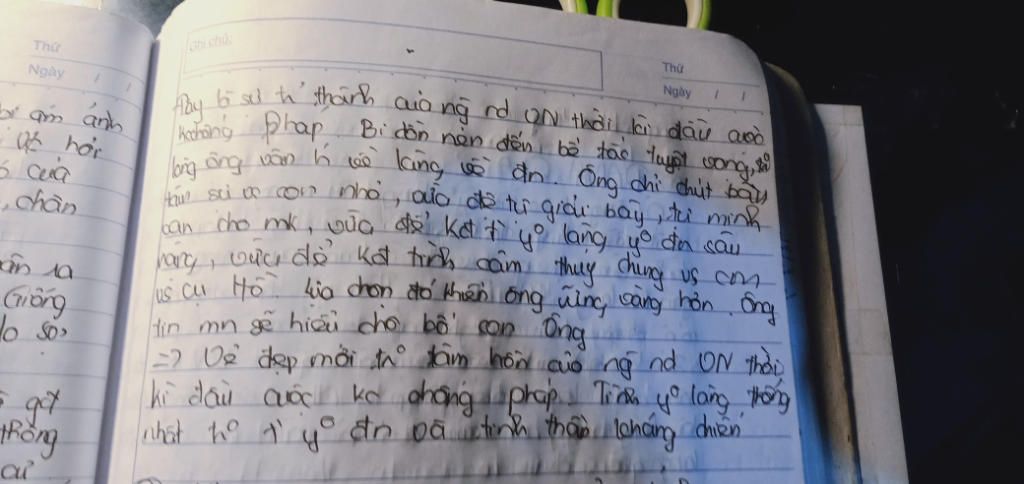 Thứ
Ngày / /
ám ánh
hỏi
của
chân
ra
Giống
lo sợ,
gợt
thông
Ghi chú:
Thứ
Ngày / /
bỏ sự thành của ng nd VN thời kì đầu cuộc
Pháp. Bị dồn nén đến bế tắc tuyệt vọng,
lòng ông vẫn h về làng về đn. Ông chỉ chút bầu
sự vs con nhỏ, để tự giải bày, tự minh
oan cho mk, vừa để kđ t yº làng yº đn sâu
nặng, vừa để kđ tình cảm thuỷ chung vs cm
vs cụ Hồ. Lựa chọn đó khiến ông vững vàng hơn. Ông
tin mn sẽ hiểu cho bố con ông
=> Vẻ đẹp mới tº tâm hồn của ng nd VN thời
kì đầu cuộc kc chống pháp. Tình yº làng thống
nhất tº t yº đn và tinh thần kháng chiến